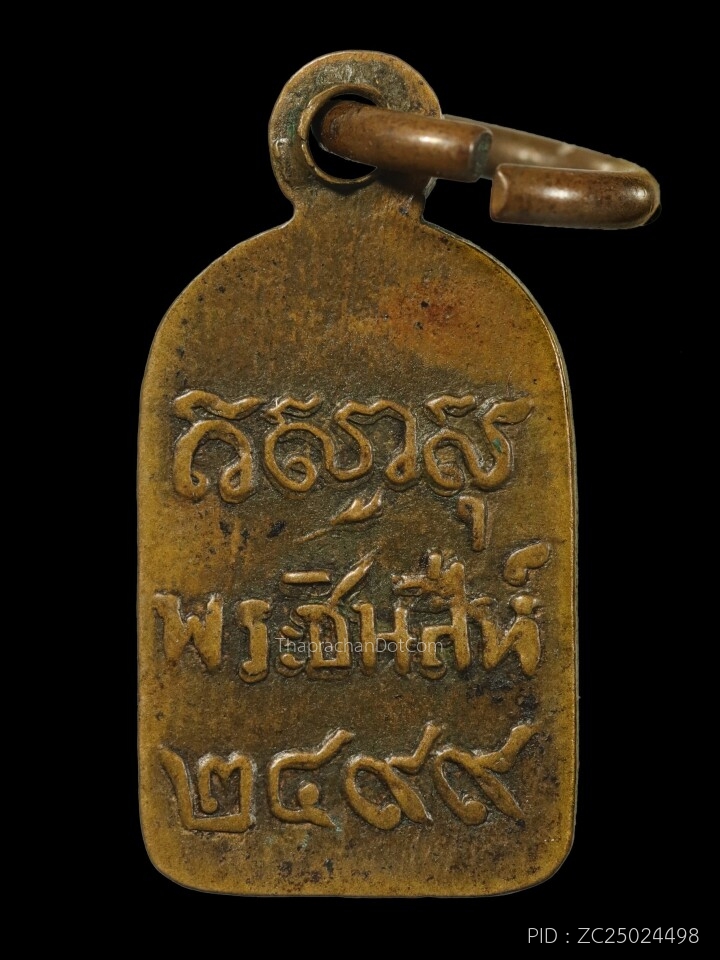 พระชินสีห์
๒๔๙๙
ThaprachanDotCom
PID : ZC25024498